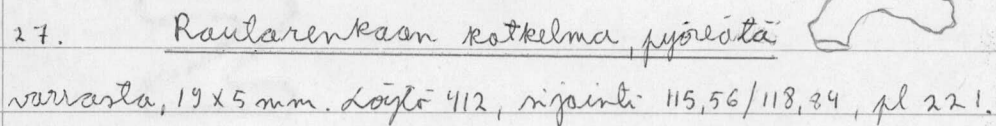 27. Rautarenkaan katkelma, pyöreätä
varrasta, 19 x 5 mm. Löytö 412, sijainti 115,56/118,84, pl 221.